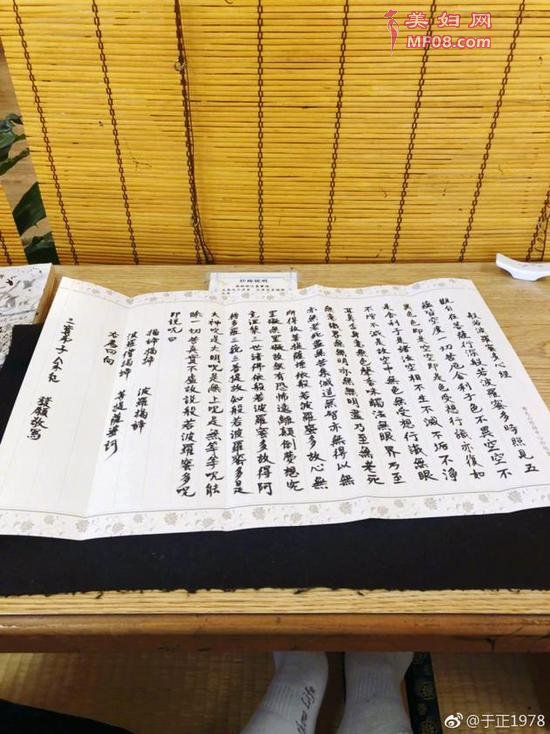 美妇网
MF08.com
抄經說明
般若波羅蜜多心經
觀自在菩薩行深般若波羅蜜多時照見五
蘊皆空度一切苦厄舍利子色不異空空不
異色色即是空空即是色受想行識亦復如
是舍利子是諸法空相不生不滅不垢不淨
不增不減是故空中無色無受想行識無眼
耳鼻舌身意無色聲香味觸法無眼界乃至
無意識界無無明亦無無明盡乃至無老死
亦無老死盡無苦集滅道無智亦無得以無
所得故菩提薩埵依般若波羅蜜多故心無
罣礙無罣礙故無有恐怖遠離顛倒夢想究
竟涅槃三世諸佛依般若波羅蜜多故得阿
耨多羅三藐三菩提故知般若波羅蜜多是
大神呪是大明呪是無上呪是無等等呪能
除一切苦真實不虛故說般若波羅蜜多呪
即說呪曰
揭諦揭諦 波羅揭諦
波羅僧揭諦 菩提薩婆訶
回向
三寶弟子 發願敬寫
@于正1978